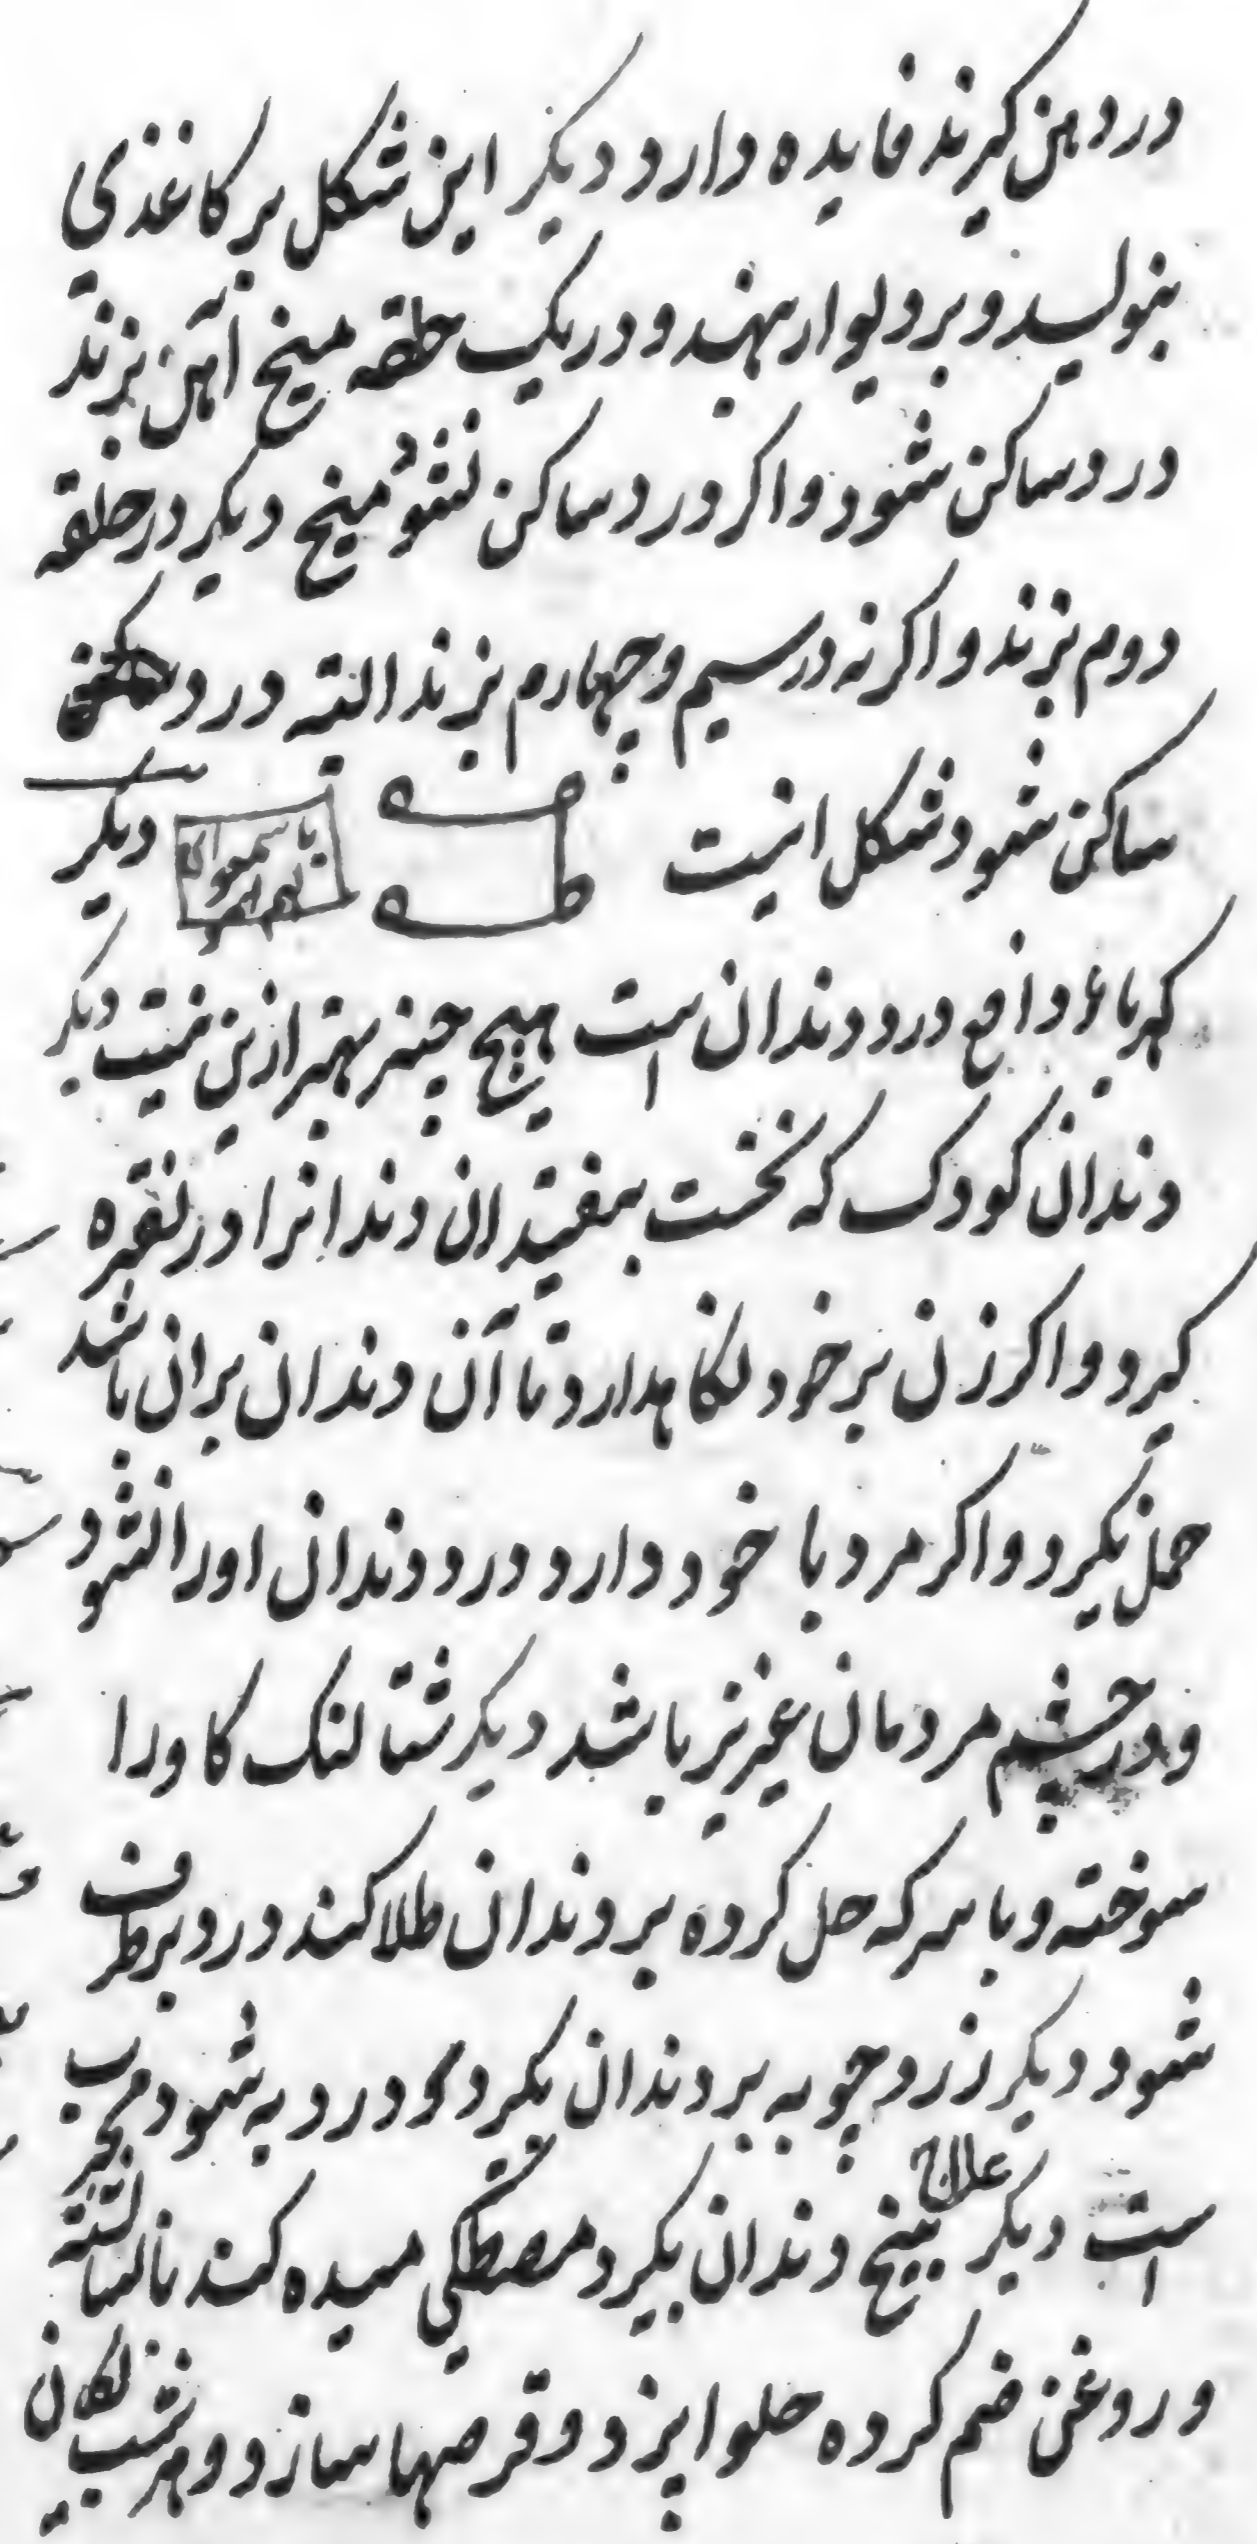 در دهن کیرند فایده دارد دیکر این شکل بر کاغذی
بنویسد و بر دیوار نهند و در یک حلقه میخ آهن بزند
درد ساکن شود و اکر درد ساکن نشود میخ دیکر در حلقه
دوم بزند و اکر نه در سیم و چهارم بزند البته درد
ساکن شود شکل اینست
دیکر
کهرباء دافع درد دندان است هیچ چیز بهتر ازین نیست دیکر
دندان کودک که نخست بیفتید ان دندانرا در نقره
کیرد و اکر زن بر خود نکاهدارد تا آن دندان بران باشد
حمل نکیرد و اکر مرد با خود دارد درد دندان اورا نشود
و در چشم مردمان عزیز باشد دیکر شتالنک کاو را
سوخته و با سرکه حل کرده بر دندان طلا کند درد برطرف
شود دیکر زردچوبه بر دندان بکرد کو درد به شود مجرب
است دیکر علاج بیخ دندان بکیرد مصطکی میده کند نانشاسته
و روغن ضم کرده حلوا پزد و قرصها سازد و هر شب یکان